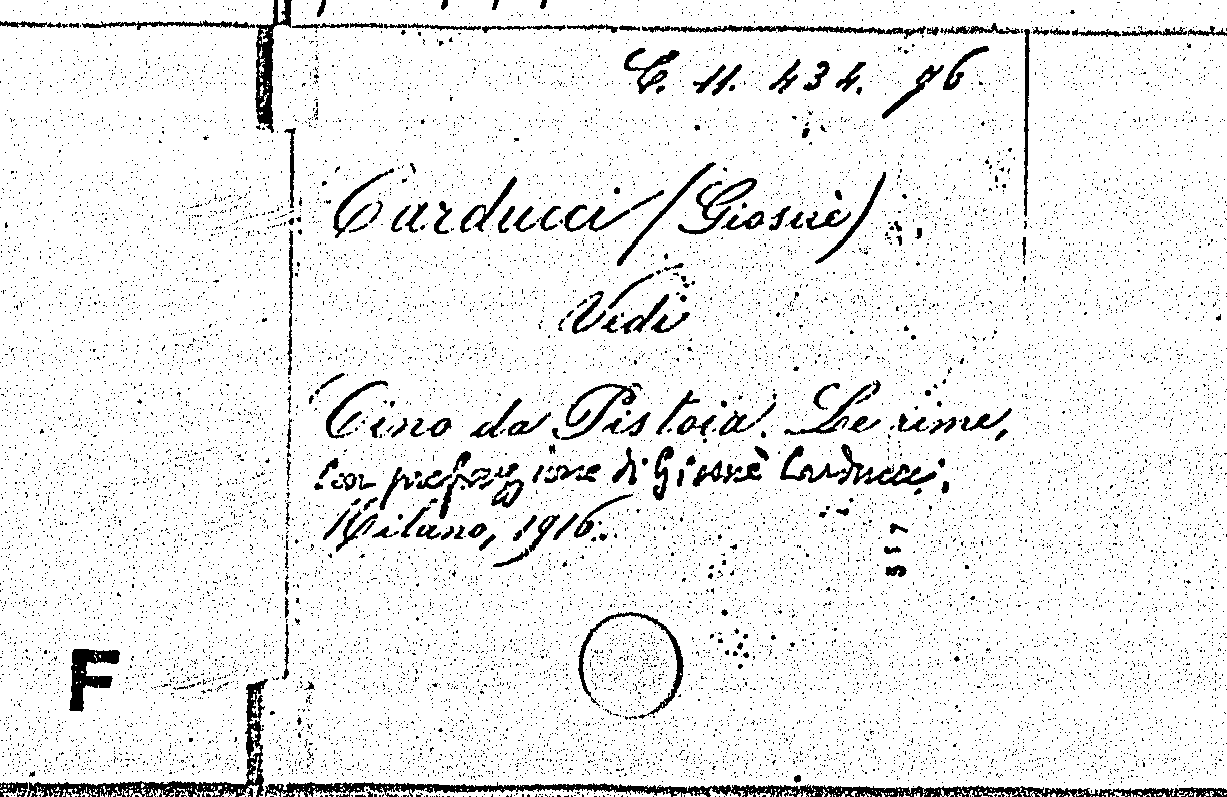 C. 11. 434. 76
Carducci (Giosuè)
Vedi
Cino da Pistoia. Le rime,
con prefazione di Giosuè Carducci,
Milano, 1916.
F